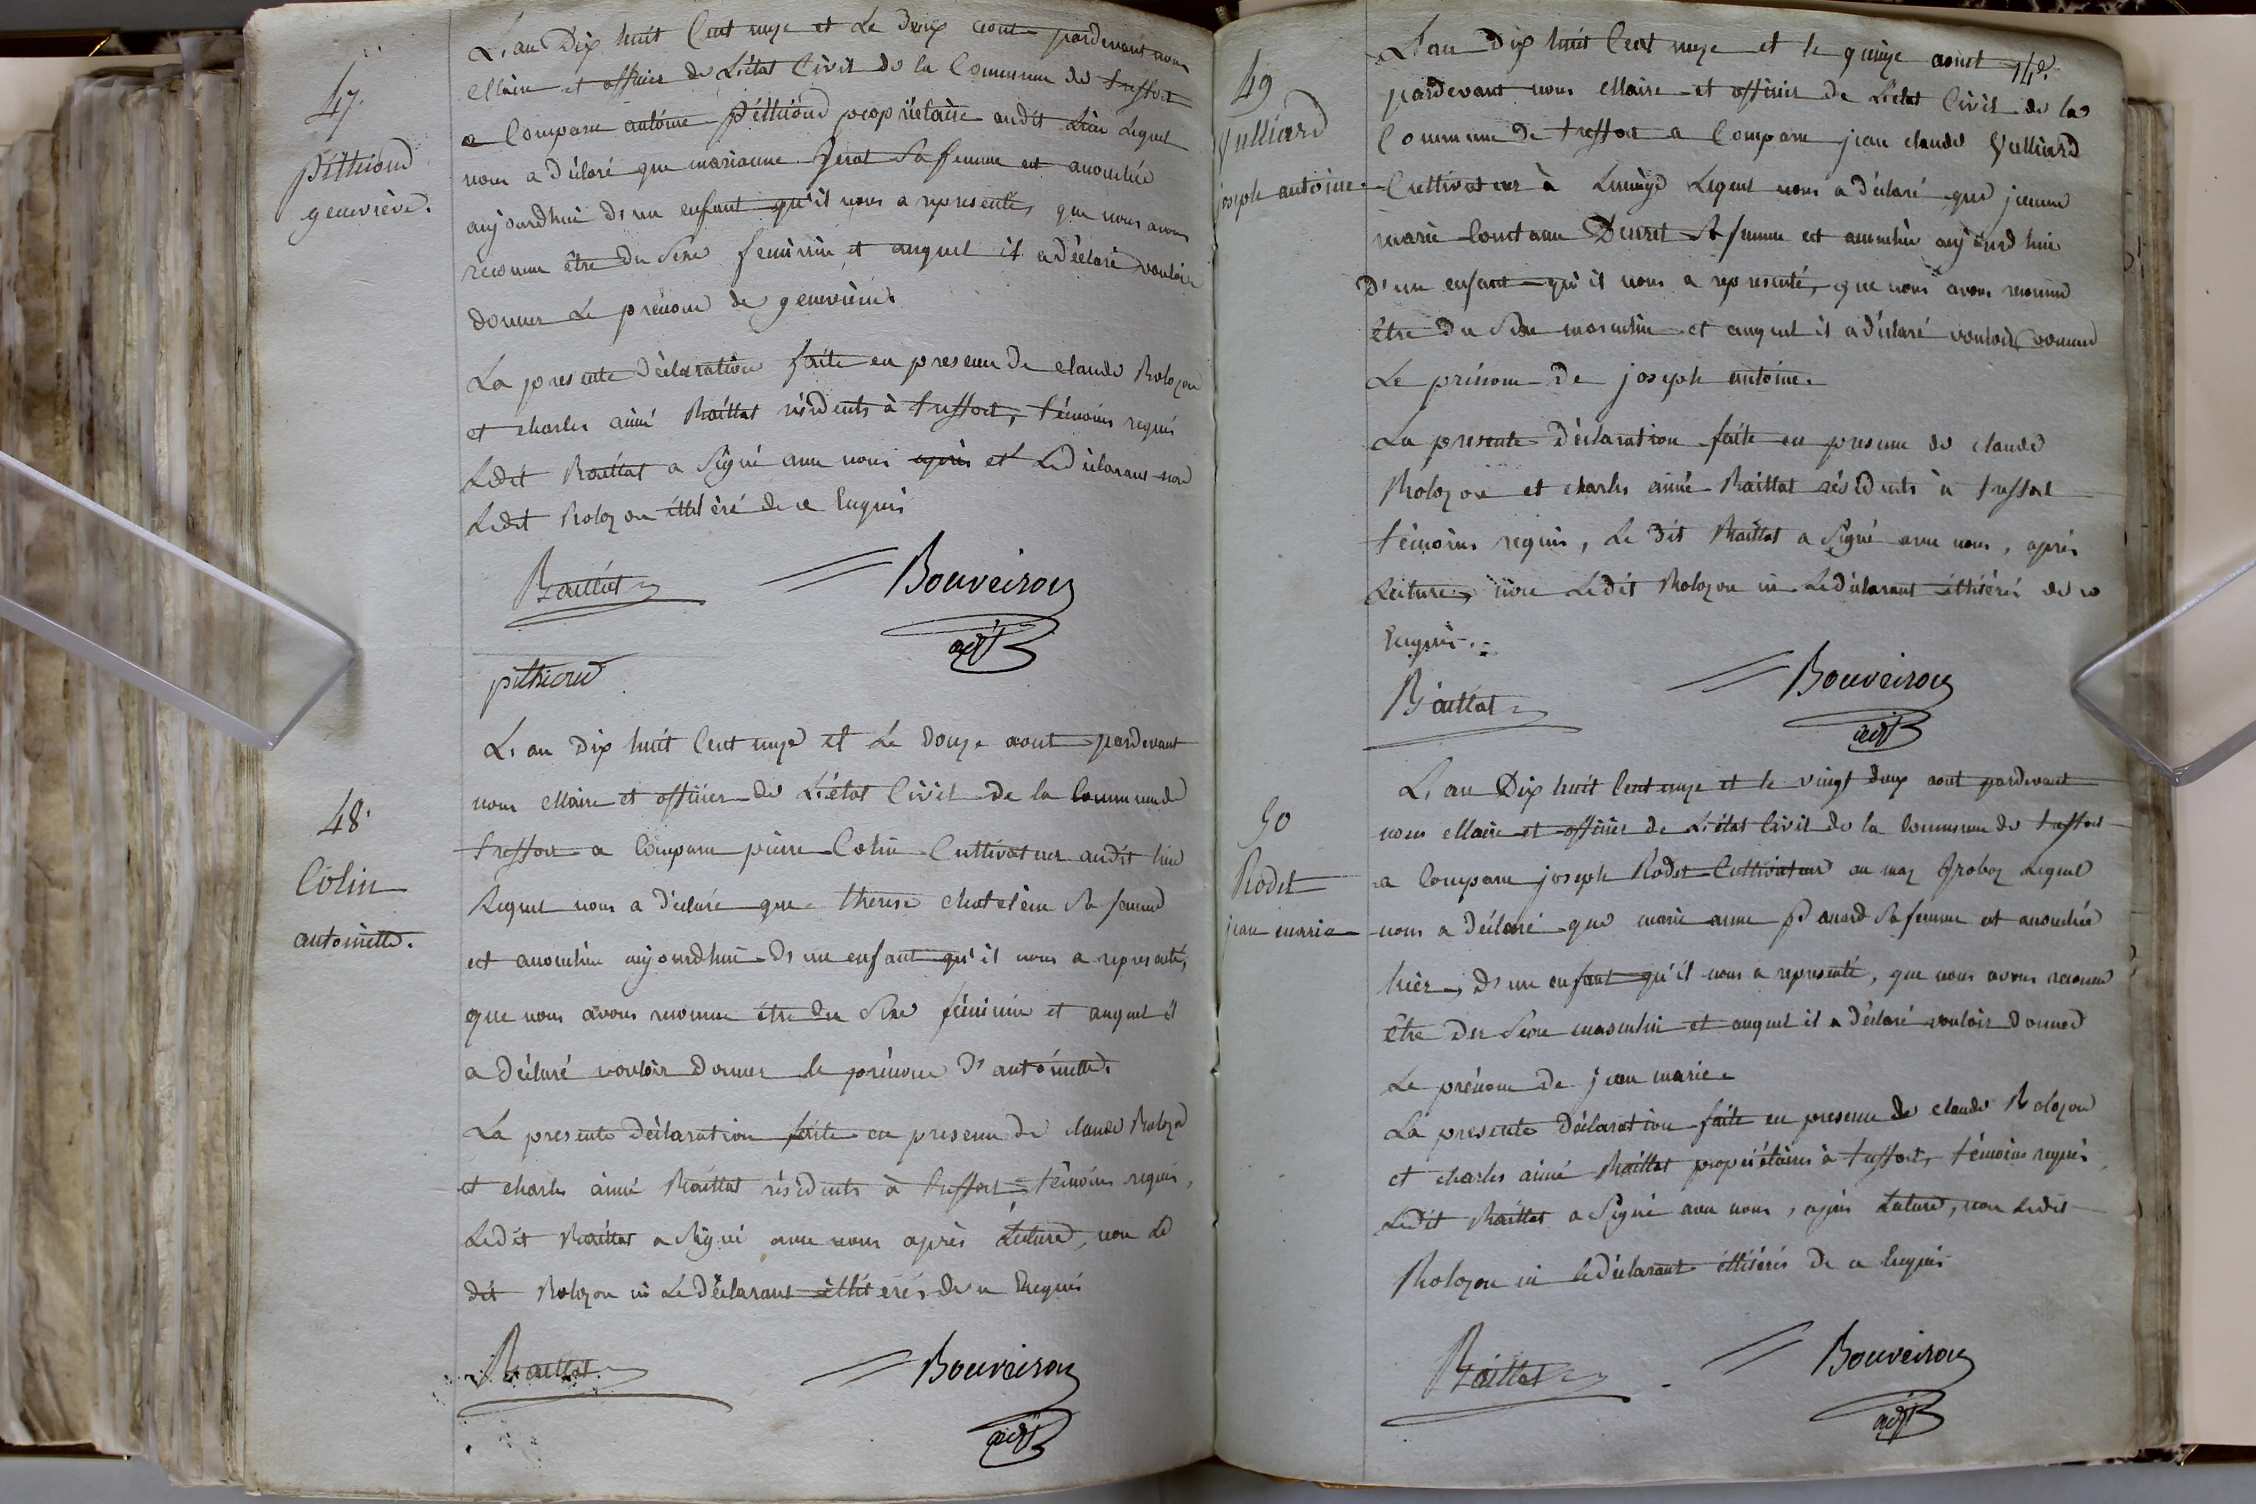 47.
pithioud
geneviève.
L'an Dix huit Cent onze et Le Deux aout pardevant nous
Maire et officier de L'état Civil de la Commune de treffort
a Comparu antoine Pithioud propriétaire audit Lieu Lequel
nous a déclaré que marianne sa femme est accouchée
aujourdhui d'un enfant qu'il nous a représenté, que nous avons
reconnu être du Sexe feminin et auquel il a déclaré vouloir
donner Le prénom de geneviève
La presente déclaration faite en presence de claude Rolozon
et charles aimé Raillat résidents à treffort, témoins requis
Ledit Raillat a Signé avec nous après et Le déclarant non
Ledit Rolozon illitéré de ce Enquis
Raillat
Bouveirou
adjt
pithioud
48.
Colin
antoinette.
L'an Dix huit Cent onze et Le Douze aout pardevant
nous Maire et officier de L'état Civil de la Commune de
treffort a Comparu pierre Colin Cultivateur audit lieu
Lequel nous a déclaré que therese chatelein Sa femme
est accouchée aujourdhui d'un enfant qu'il nous a representé,
que nous avons reconnu être du Sexe féminin et auquel il
a déclaré vouloir donner le prénom d'antoinette.
La presente Déclaration faite en presence de claude Rolozon
et charles aimé Raillat résidents à treffort témoins requis,
Ledit Raillat a Signé avec nous après Lecture, non Le
dit Rolozon ni Le Déclarant illiterés de ce Enquis
Raillat
Bouveirou
adjt
14e.
49
Vulliard
joseph antoine.
L'an dix huit Cent onze et le quinze aout
pardevant nous Maire et officier de L'etat Civil de la
Commune de treffort a Comparu jean claude Vulliard
Cultivateur à Lequel nous a déclaré que jeanne
marie Constance Sa femme est accouchée aujourd'hui
D'un enfant qu'il nous a representé, que nous avons reconnu
être du Sexe masculin et auquel il a déclaré vouloir donner
Le prénom de joseph antoine.
La presente Déclaration faite en presence de claude
Rolozon et charles aimé Raillat résidents à treffort
témoins requis, Le dit Raillat a Signé avec nous, après
Lecture, non Ledit Rolozon ni Le déclarant illitérés de ce
Enquis.
Raillat
Bouveirou
adjt
50
Rodet
jean marie
L'an Dix huit Cent onze et le vingt deux aout pardevant
nous Maire et officier de L'état Civil de la Commune de treffort
a Comparu joseph Rodet Cultivateur au maz Groboz Lequel
nous a déclaré que marie anne Panard Sa femme est accouchée
hier, d'un enfant qu'il nous a representé, que nous avons reconnu
être du Sexe masculin et auquel il a déclaré vouloir donner
Le prénom de jean marie
La presente Déclaration faite en presence de claude Rolozon
et charles aimé Raillat propriétaires à treffort, témoins requis
Ledit Raillat a Signé avec nous, après Lecture, non Ledit
Rolozon ni le déclarant illitérés de ce Enquis
Raillat
Bouveirou
adjt